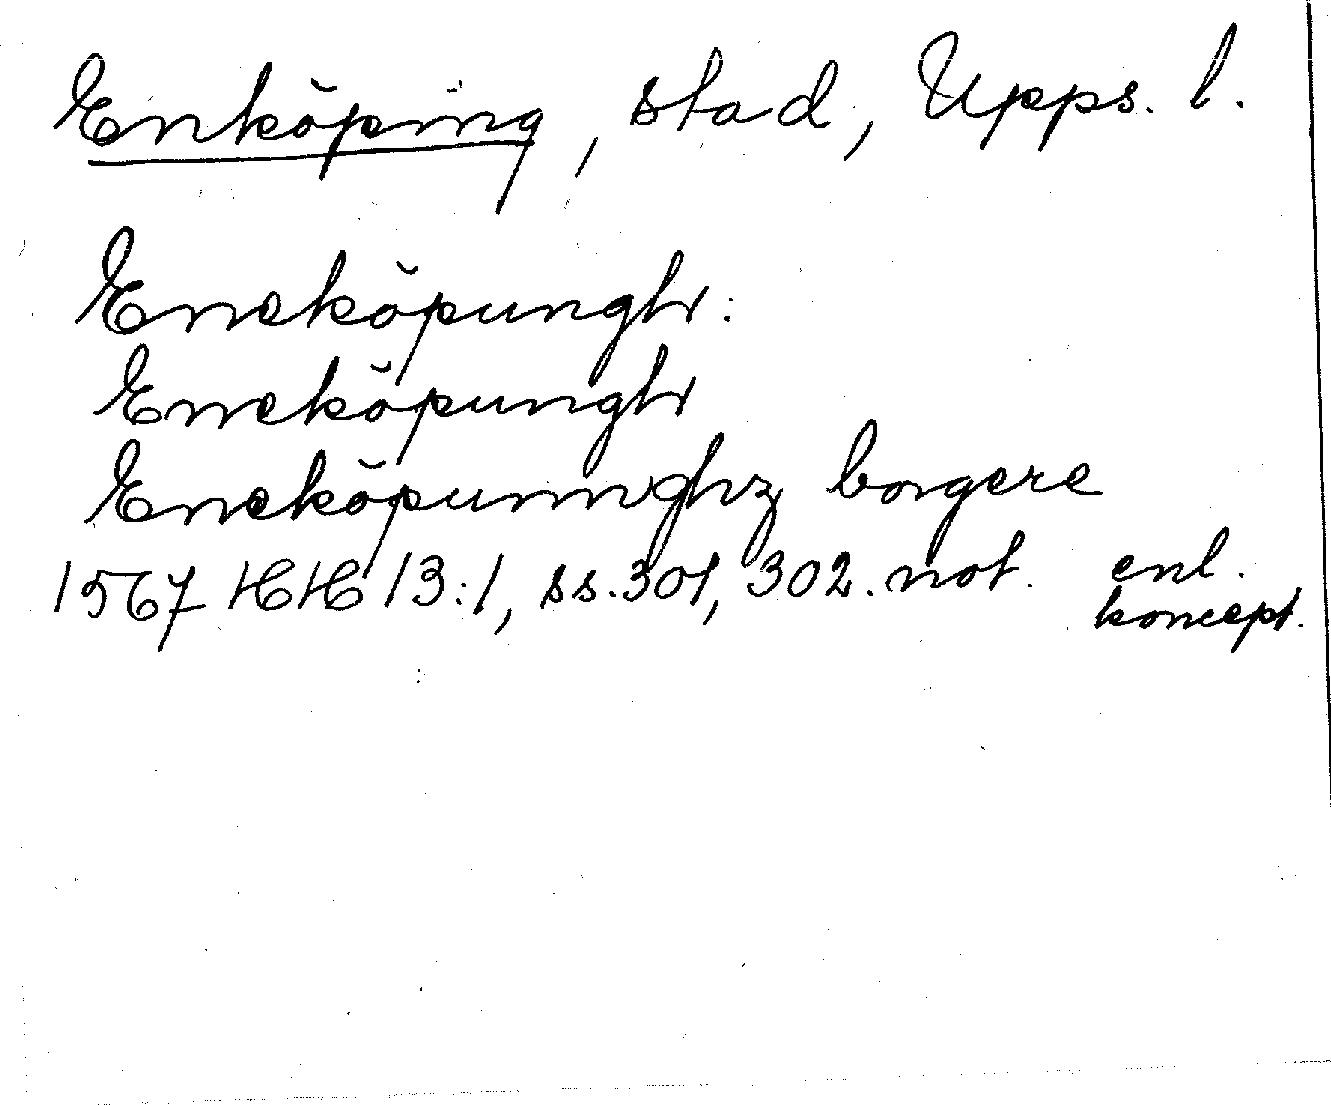 Enköping, stad, Upps. l.
Eneköpungh:
Eneköpungh
Eneköpunnghz borgere
1567 HH 13:1, ss. 301, 302. not. enl.
koncept.